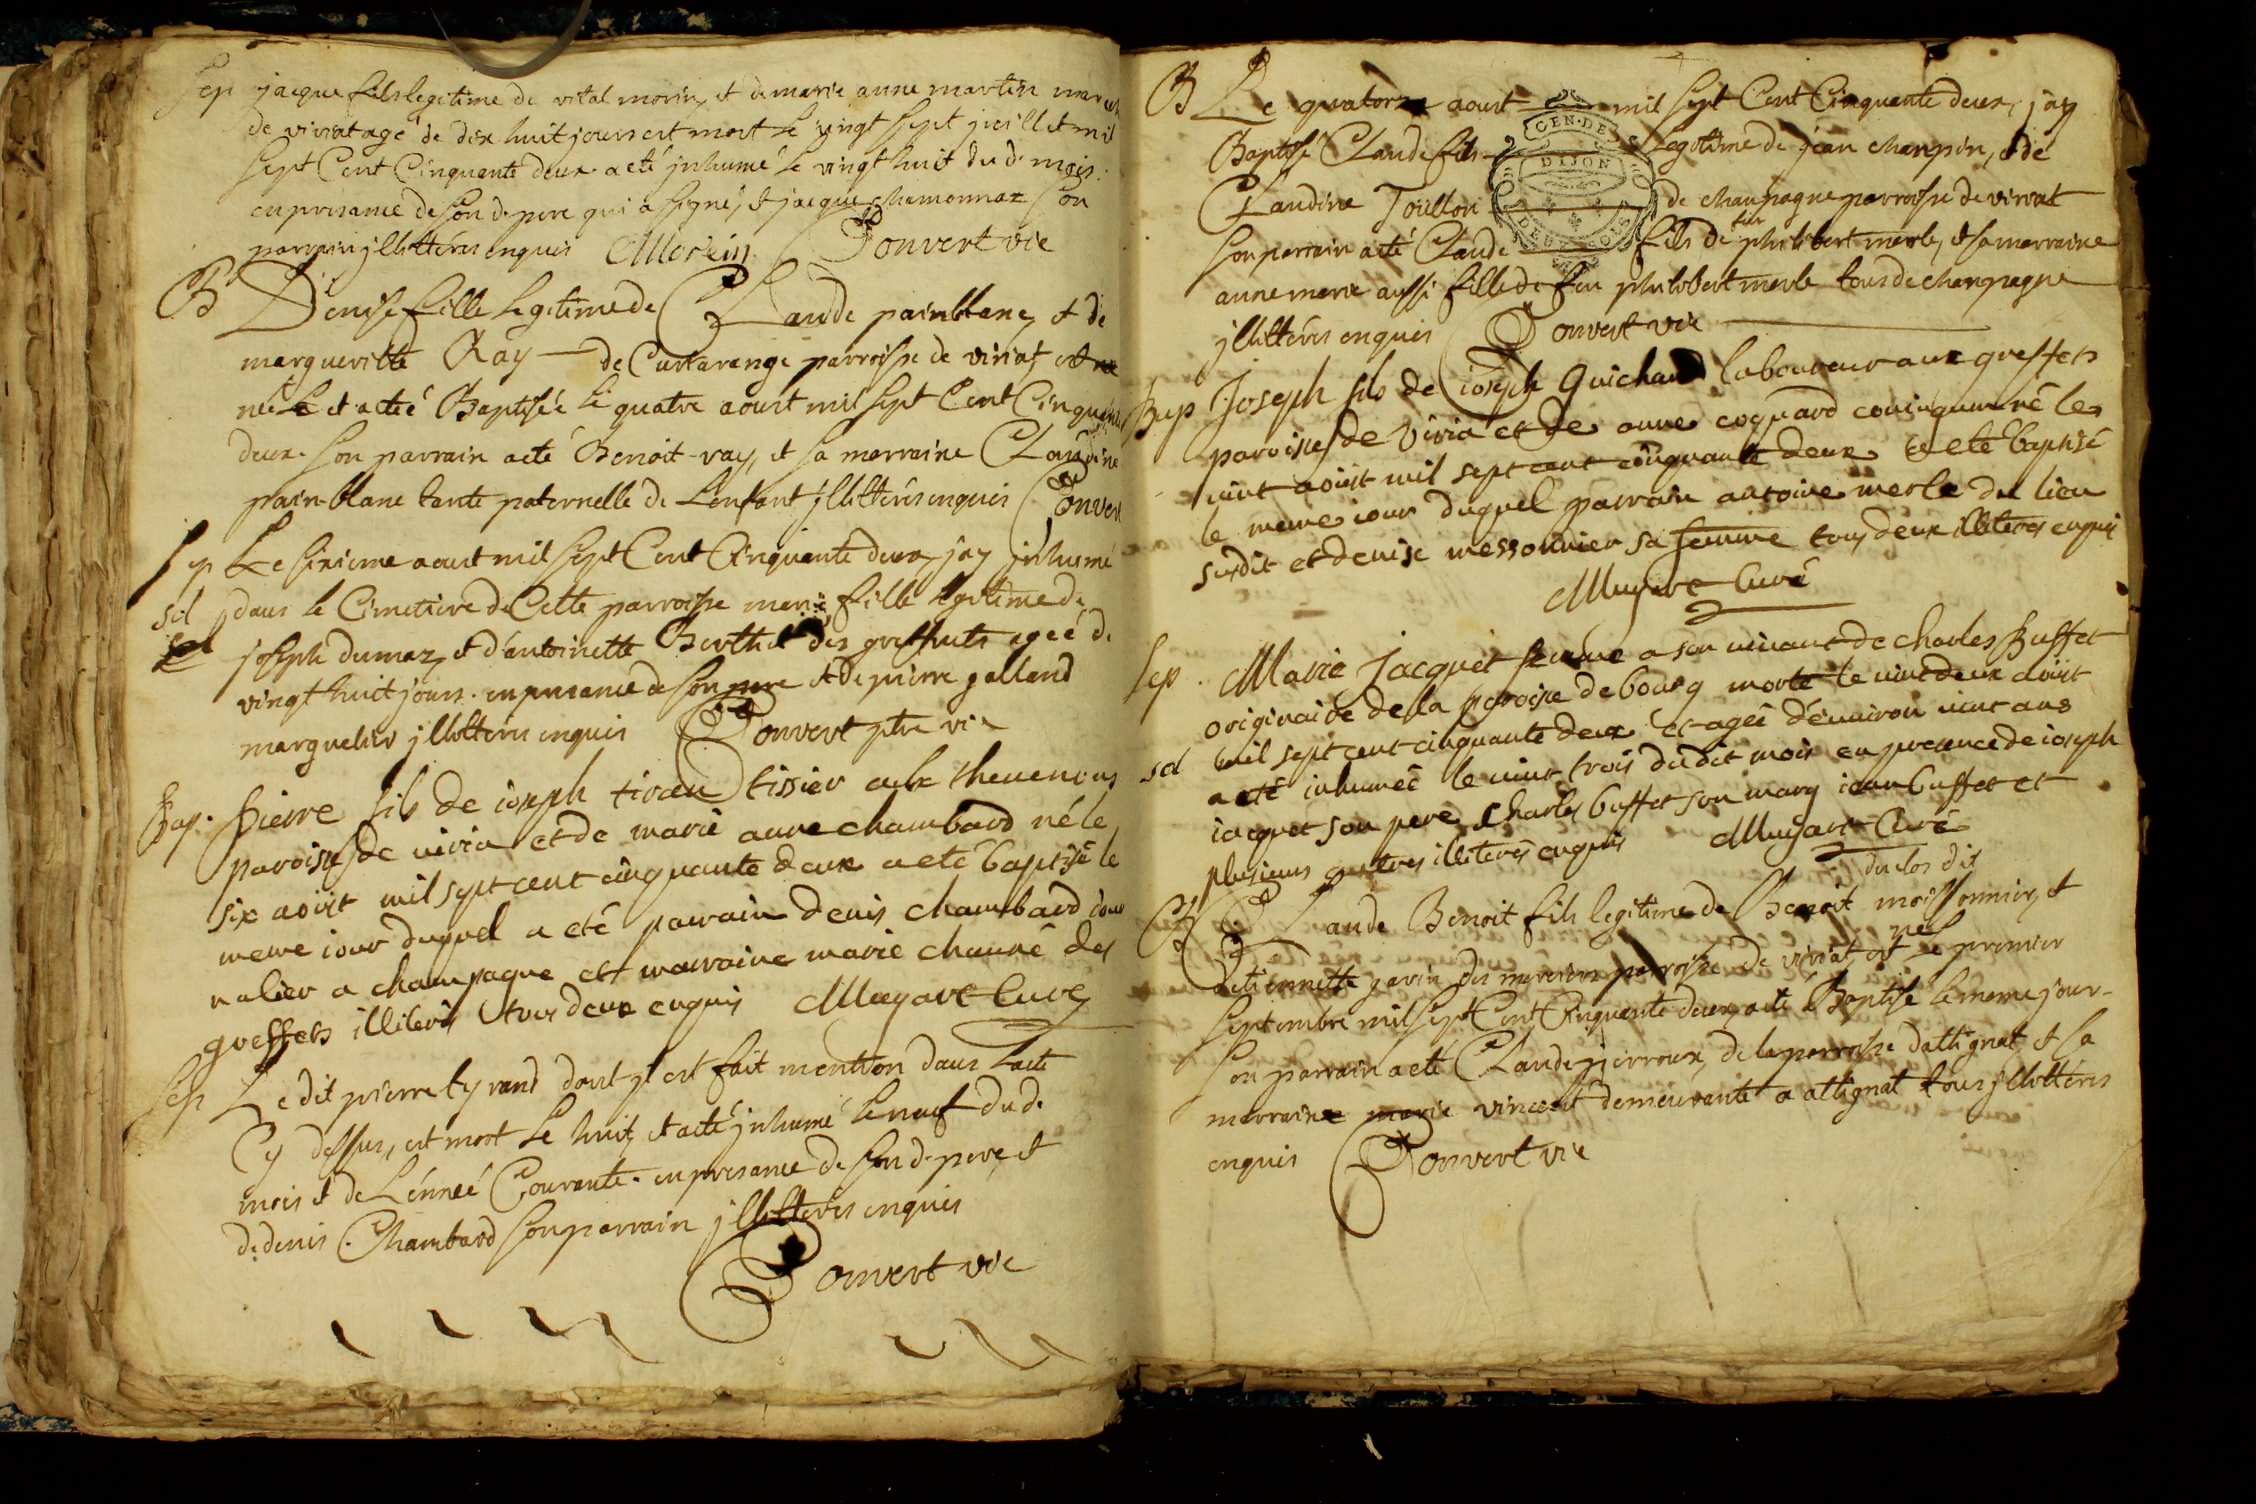 Sep jacque fils legitime de vital morin, et de marie anne martin
de viriat agé de dix huit jours est mort le vingt sept juillet mil
sept Cent Cinquante deux. a eté jnhumé le vingt huit du d. mois.
en presance de son d. pere qui a signé, et jacque chamonnaz son
parrain jllittéres enquis CMorin Convert vic
B Denise fille legitime de Claude painblanc, et de
margueritte Ray de Curtarenge parroisse de viriat, est
née et a eté Baptisée le quatre aoust mil sept Cent Cinquante
deux. son parrain a eté Benoit ray, et sa marraine Claudine
painblanc tante paternelle de L'enfant jllittérés enquis Convert
Sep Le sixieme aoust mil sept Cent Cinquante deux, j'ay jnhumé
sol dans le Cimetiere de Cette parroisse marie fille legitime de
joseph dumaz, et d'antoinette Berthet des greffets agée de
vingt huit jours. en presance de son pere et de pierre galland
marguelier jllittéres enquis Convert ptre vic
Bap. Pierre fils de ioseph tiran tissier aux thevenins
paroisse de viria et de marie anne chambard né le
six aoist mil sept cent cinquante deux a eté baptisé le
meme iour duquel a eté parrain denis chambard iour
nalier a champagne et marraine marie channé des
greffets illiterés tous deux enquis Mugart Curé
Sep Le dit pierre tyrand dont jl est fait mention dans L'acte
Cy dessus, est mort le huit, et a eté jnhumé le neuf du d.
mois et de L'énneé Courante. en presance de son d. pere, et
de denis Chambard son parrain jllittéres enquis
Convert vic
B Le quatorze aoust mil sept Cent Cinquante deux, j'ay
Baptisé Claude fils legitime de jean changin, et de
Claudine Toillon de champagne parroisse de viriat
GEN. DE
DIJON
DEUX SOLS
son parrain a eté Claude fils de feu philibert merle, et sa marraine
anne marie aussi fille de feu philibert merle tous de champagne
jllittéres enquis Convert vic
Bap Joseph fils de ioseph Guichard laboureur aux greffets
paroisse de Viria et de anne coquard né le
vint aoist mil sept cent cinquante deux a eté baptisé
le meme iour duquel parrain antoine merle du lieu
susdit et denise messonnier sa femme tous deux illiteres enquis
Mugart Curé
Sep. Marie Jacquet femme a son vivant de charles Buffet
originaire de la paroise de bourg morte le vint deux aoist
sol mil sept cent cinquante deux et ageé d'environ vint ans
a eté inhumeé le vint trois dudit mois en presence de ioseph
iacquet son pere charles buffet son mary iean buffet et
plusieurs autres illiterés enquis Mugart Curé
duclos dit
B Claude Benoit fils legitime de Benoit moissonnier, et
d'etiennette gavin des merciers parroisse de viriat est né le premier
septembre mil sept Cent Cinquante deux, a eté Baptisé le meme jour.
son parrain a eté Claude pirroux, de la parroisse d'attignat et sa
marraine marie vincent demeurante a attignat tous jllittéres
enquis Convert vic